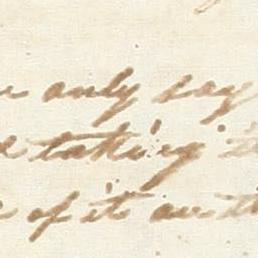 only say
taking
of it